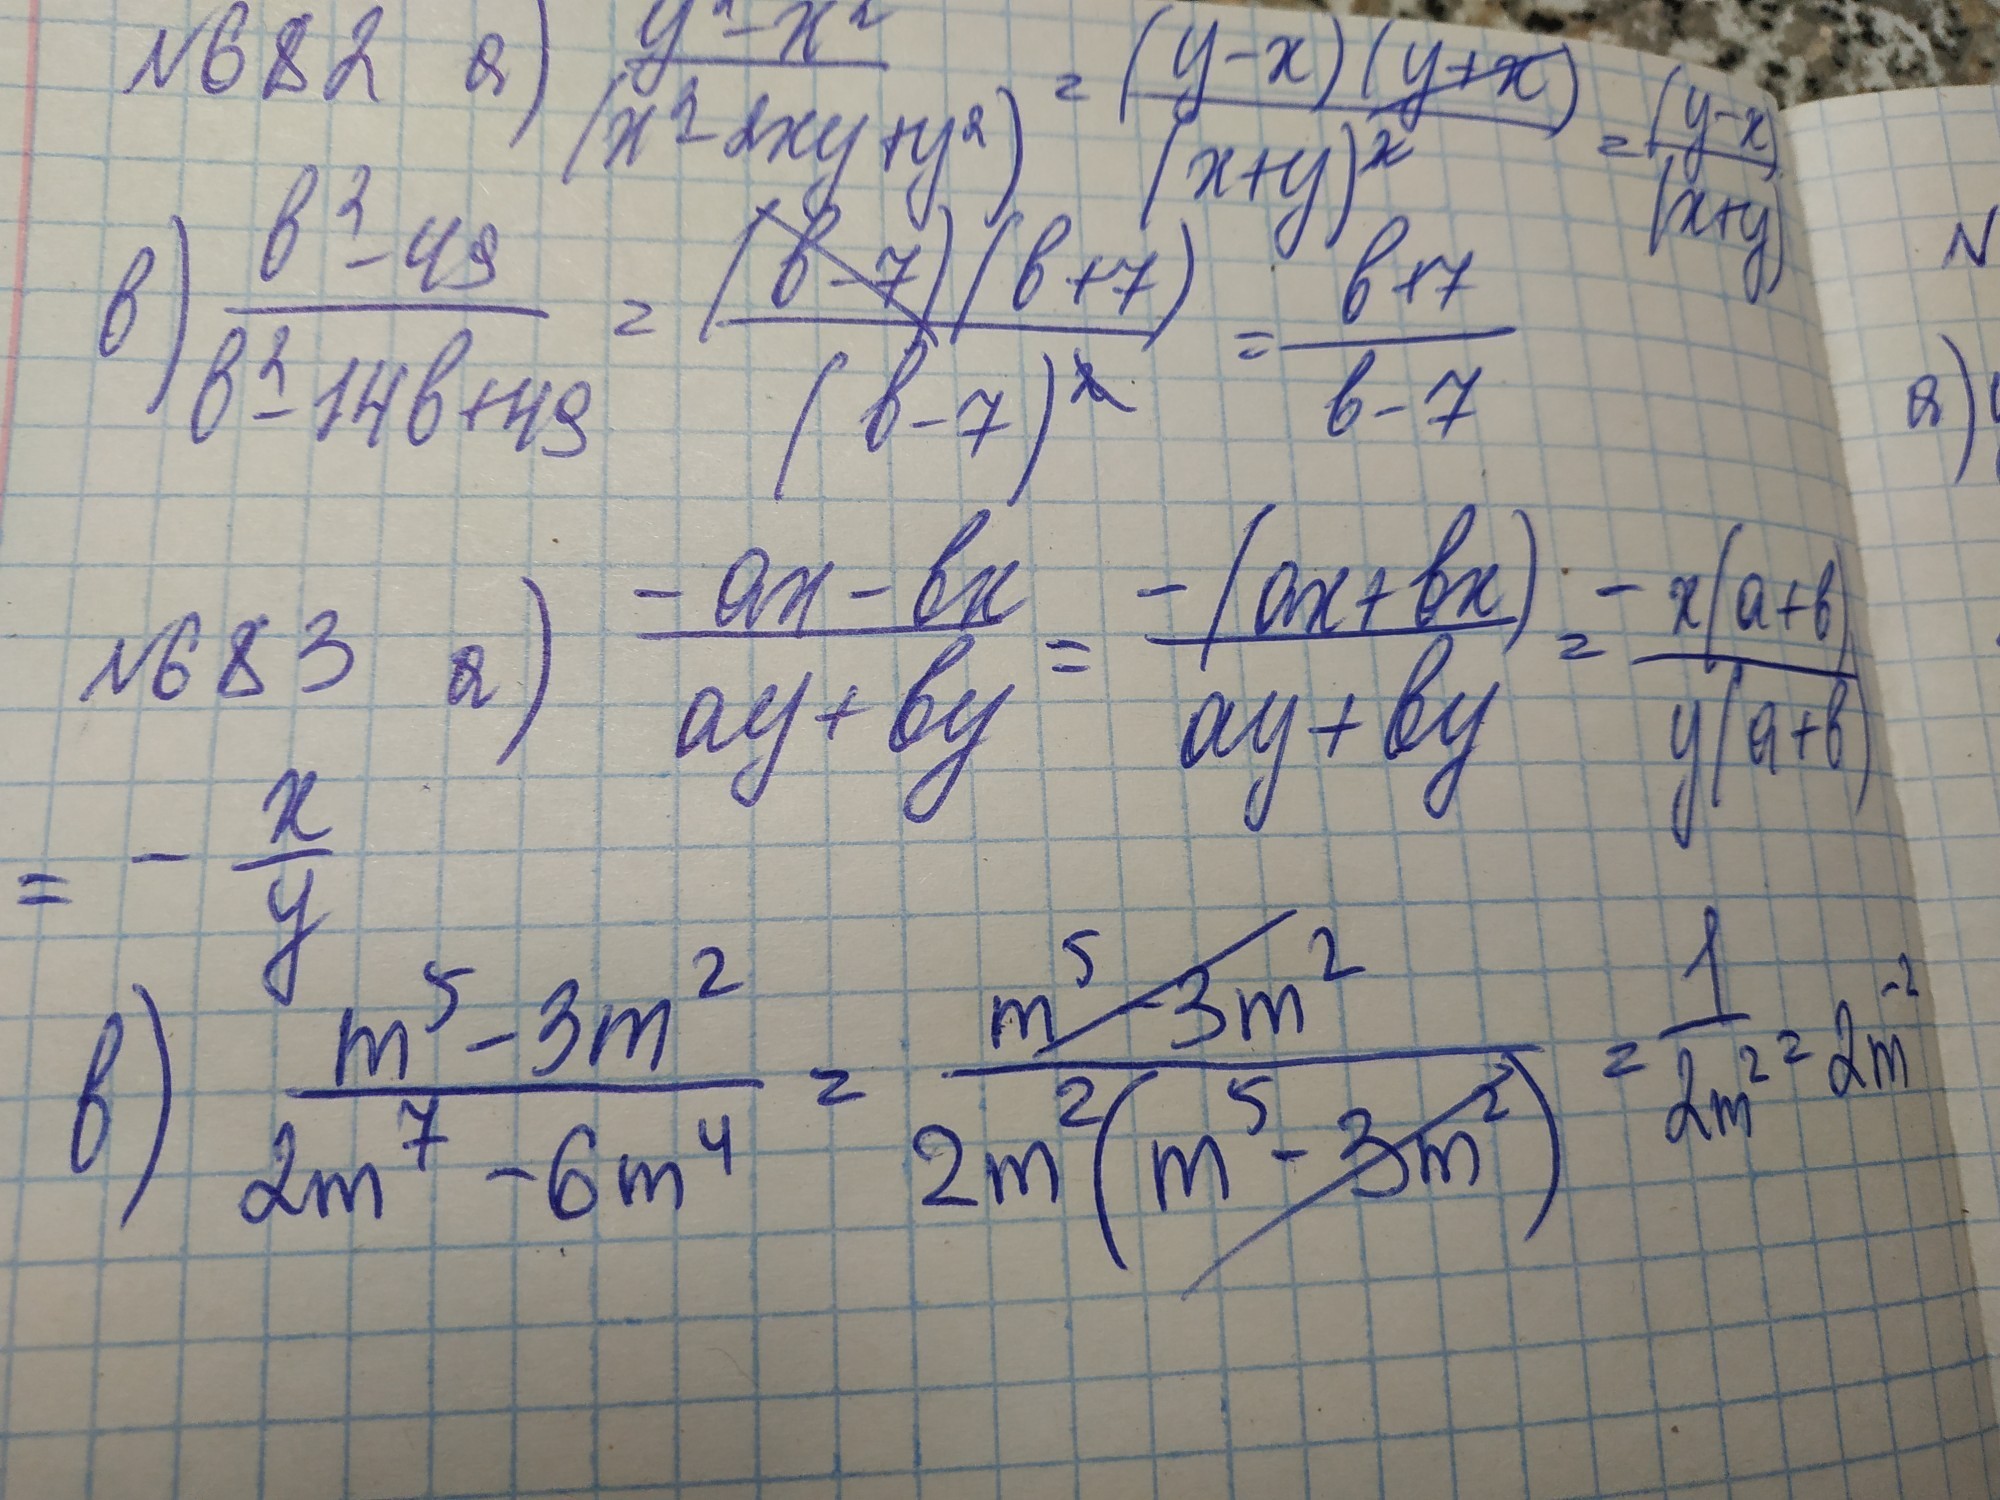 №682 а) (y²-x²)/(x²-2xy+y²) = (y-x)(y+x)/(x+y)² = (y-x)/(x+y)
в) (b²-49)/(b²-14b+49) = (b-7)(b+7)/(b-7)² = (b+7)/(b-7)
№683 а) (-ax-bx)/(ay+by) = -(ax+bx)/(ay+by) = -x(a+b)/y(a+b)
= -x/y
в) (m⁵-3m²)/(2m⁷-6m⁴) = (m⁵-3m²)/2m²(m⁵-3m²) = 1/2m² = 2m⁻²
N
а)